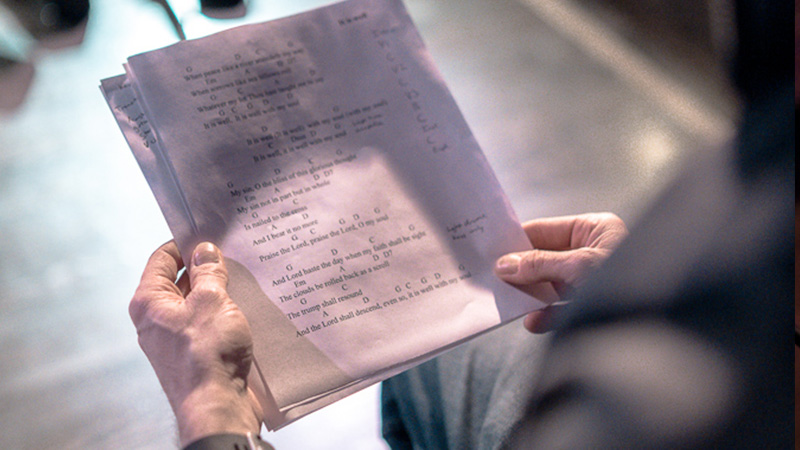 It is well
G D C G
When peace like a river attendeth my soul
Em A D D7
When sorrows like sea billows roll
G C A D
Whatever my lot Thou hast taught me to say
G C G D G
It is well, it is well with my soul
D G
It is well (it is well) with my soul (with my soul)
C D G
It is well, it is well with my soul
G D C G
My sin, O the bliss of this glorious thought
Em A D D7
My sin not in part but in whole
G C
Is nailed to the cross
A D
And I bear it no more
G C G D G
Praise the Lord, praise the Lord, O my soul
G D C G
And Lord haste the day when my faith shall be sight
Em A D D7
The clouds be rolled back as a scroll
G C
The trump shall resound
A D G C G D G
And the Lord shall descend, even so, it is well with my soul